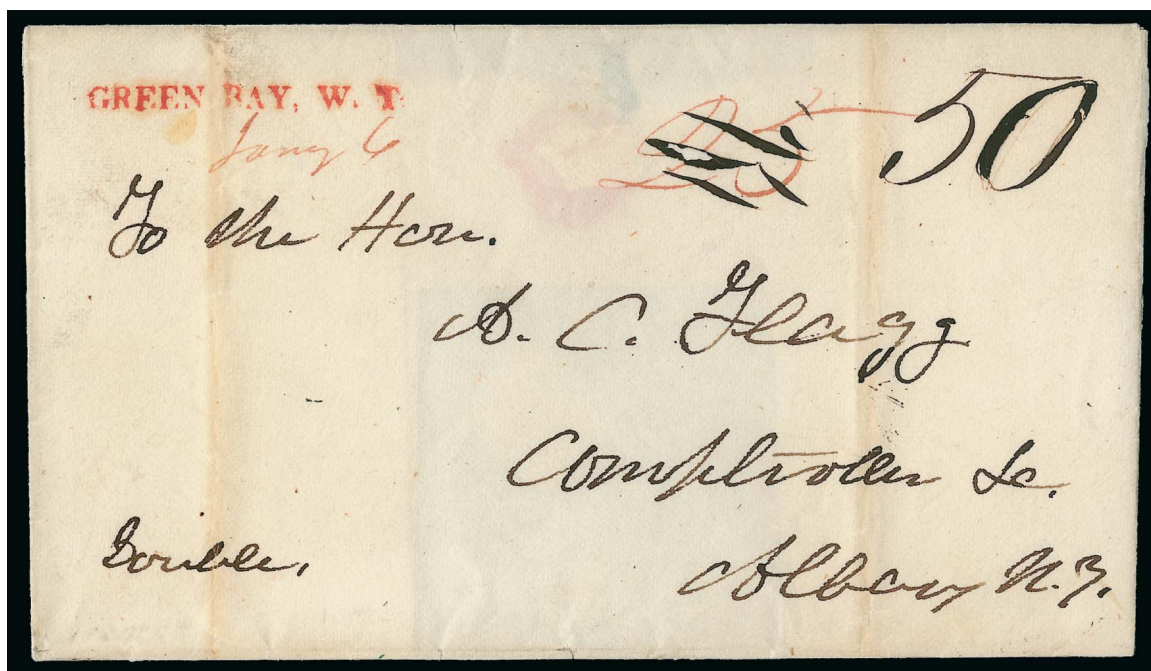 GREEN BAY, W. T.
Jany 6
25 50
To the Hon.
A. C. Flagg
Comptroller &c.
Albany N.Y.
Double.